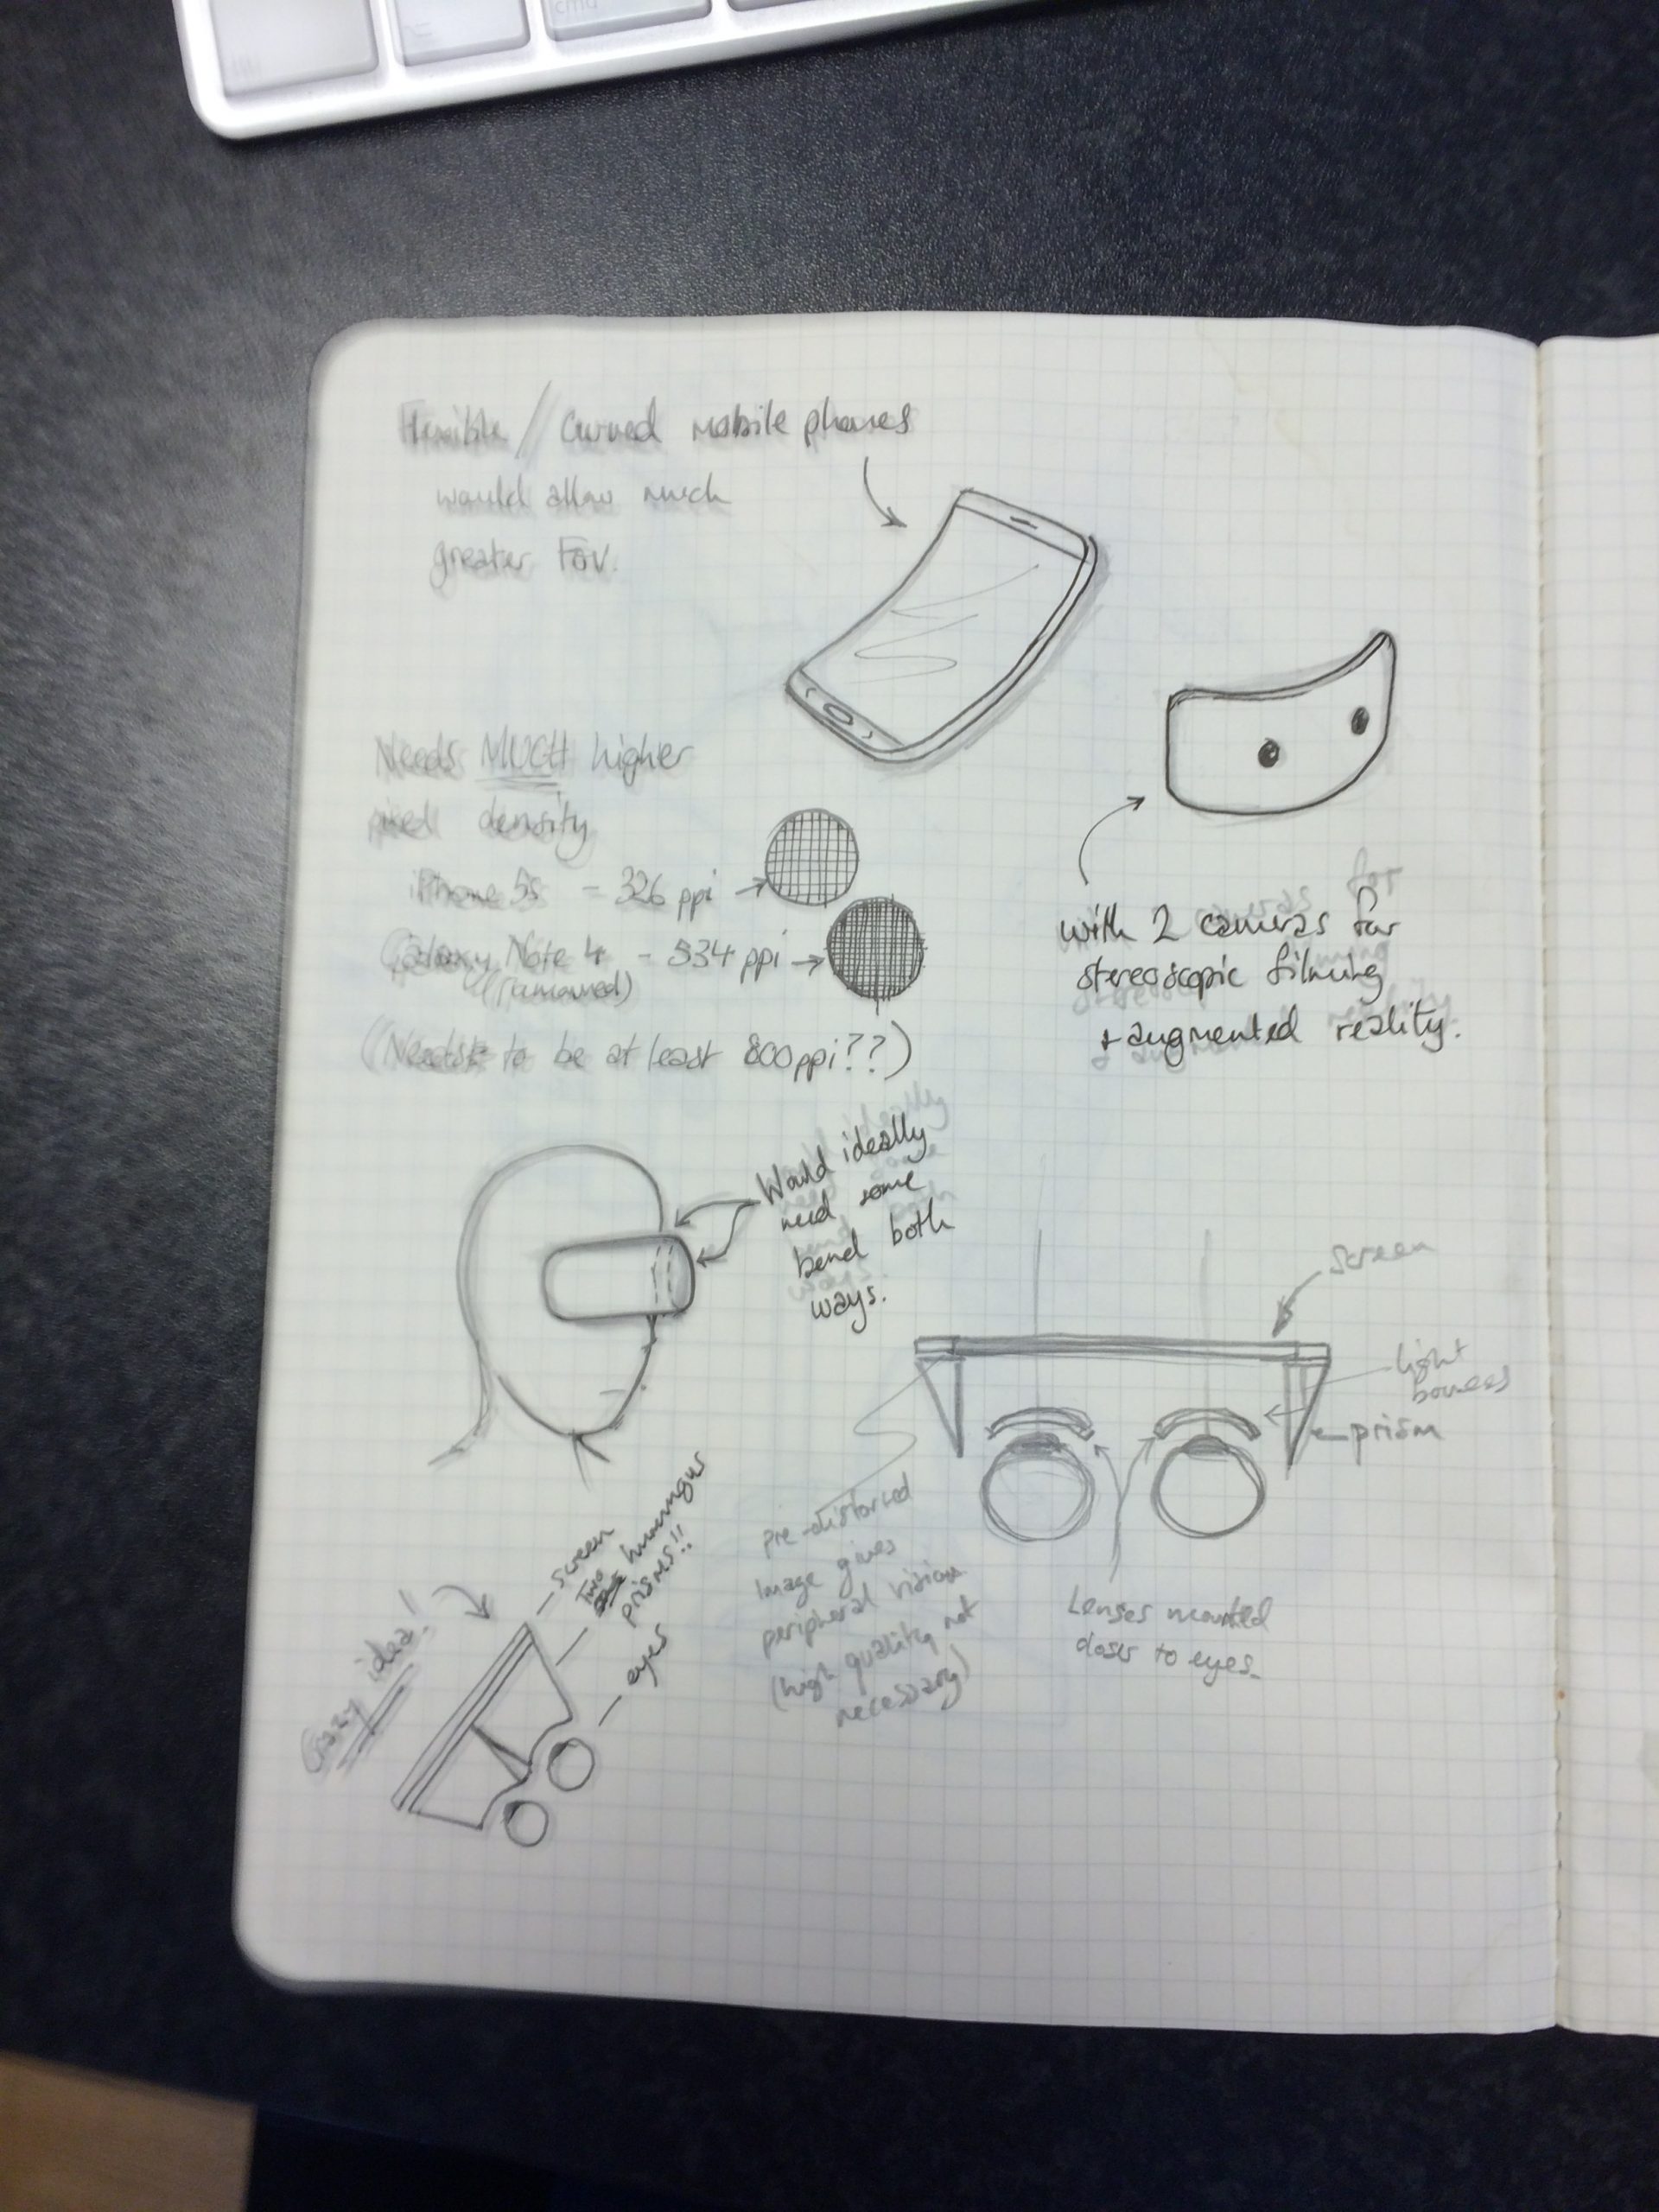 Flexible / Curved mobile phones
would allow much
greater FOV.
Needs MUCH higher
pixel density
iPhone 5s - 326 ppi
Galaxy Note 4 - 534 ppi
(rumoured)
(Needs to be at least 800ppi??)
with 2 cameras for
stereoscopic filming
+ augmented reality.
Would ideally
need some
bend both
ways.
screen
light
bounces
prism
Lenses mounted
closer to eyes.
Pre-distorted
image gives
peripheral vision
(high quality not
necessary)
Crazy idea!
screen
Two humungus
prisms!!
eyes
cmd